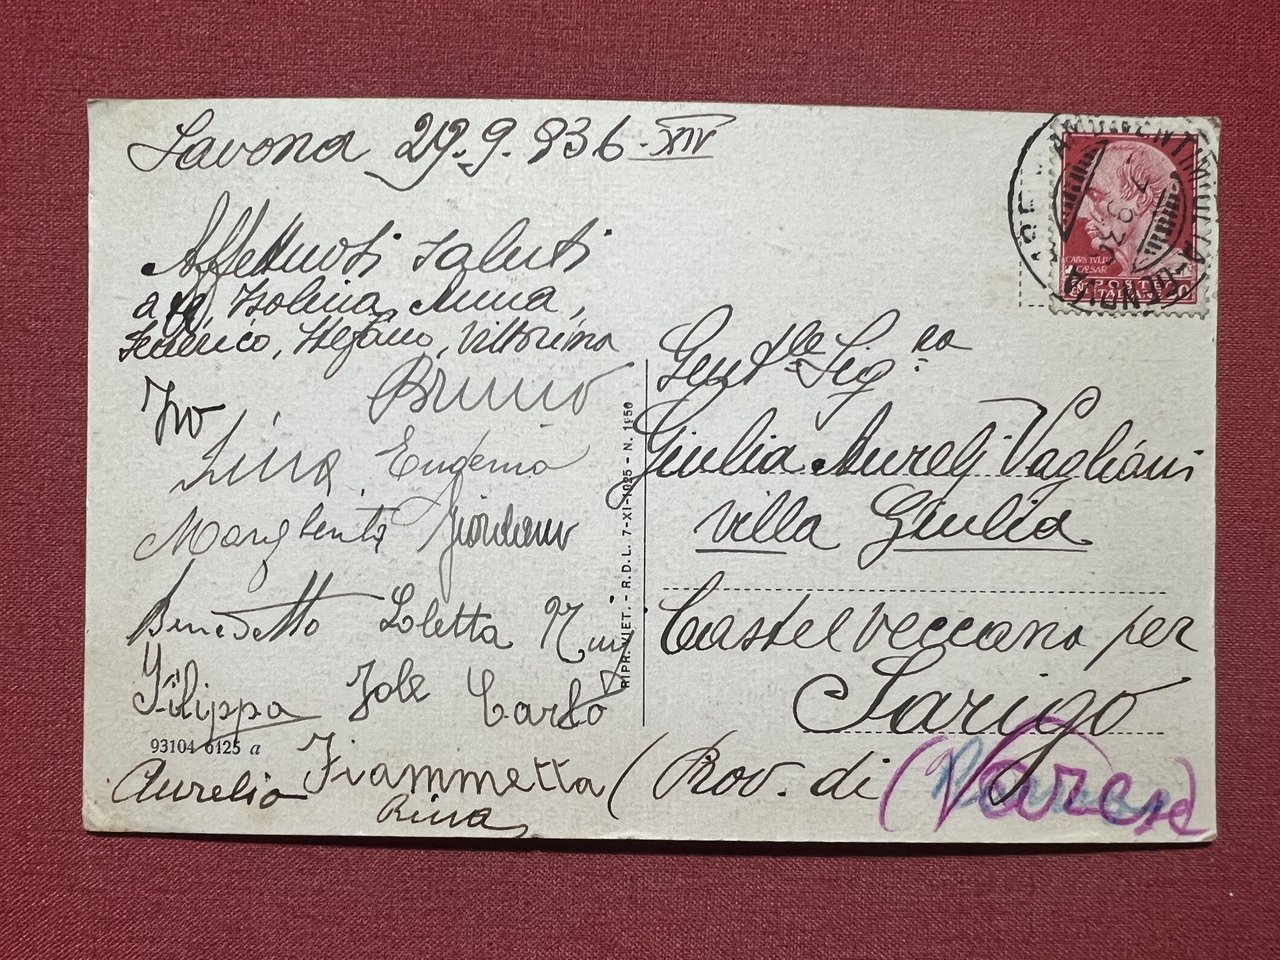 Savona 29.9.936.XIV
Affettuosi saluti
Isolina, Anna,
Federico, Stefano, Vittorina
Ivo Bruno
Lina, Eugenia
Margherita Giordano
Benedetto Loletta
Filippa Iole Carlo
93104 6125 a
Aurelia Fiammetta
Rina
RIPR. VIET. - R.D.L. 7-XI-1925 - N. 1950
CAIVS IVLIVS
CAESAR
POSTE
ITALIANE
VENTIMIGLIA-GENOVA
Gent.le Sig.ra
Giulia Aureli Vagliani
Villa Giulia
Castelveccana per
Sarigo
(Prov. di (Varese)